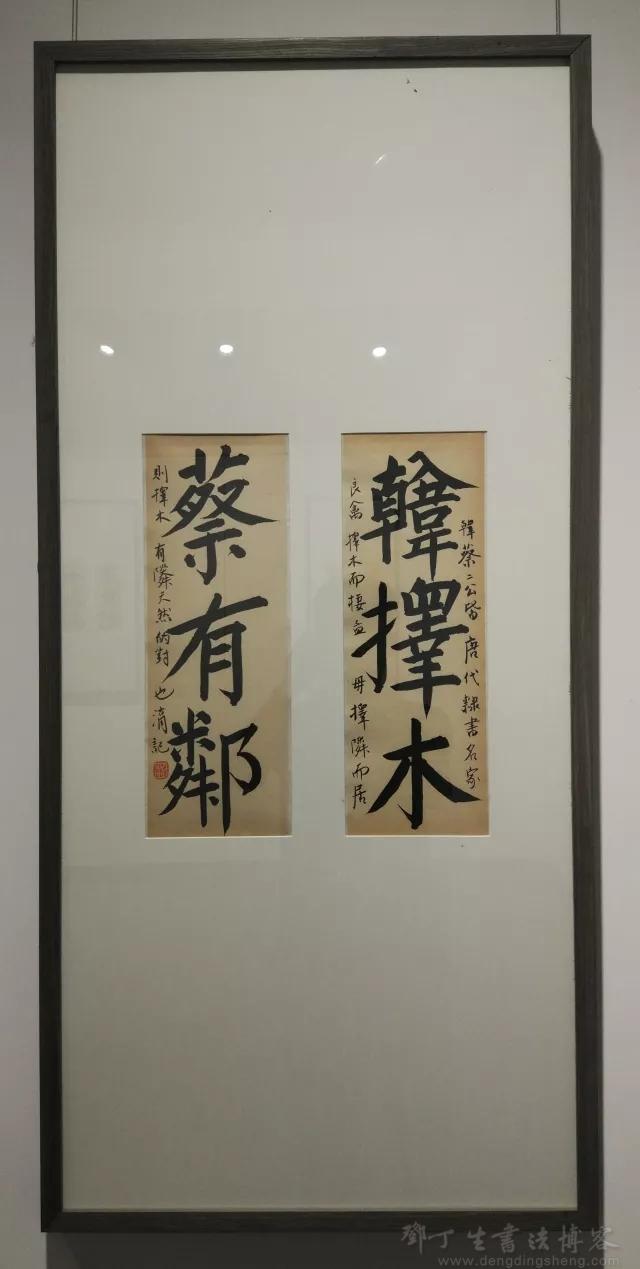 韓蔡二公皆唐代隸書名家
韓擇木
良禽擇木而棲孟母擇隣而居
蔡有鄰
則擇木有隣天然的對也 記
鄧丁生書法博客
www.dengdingsheng.com